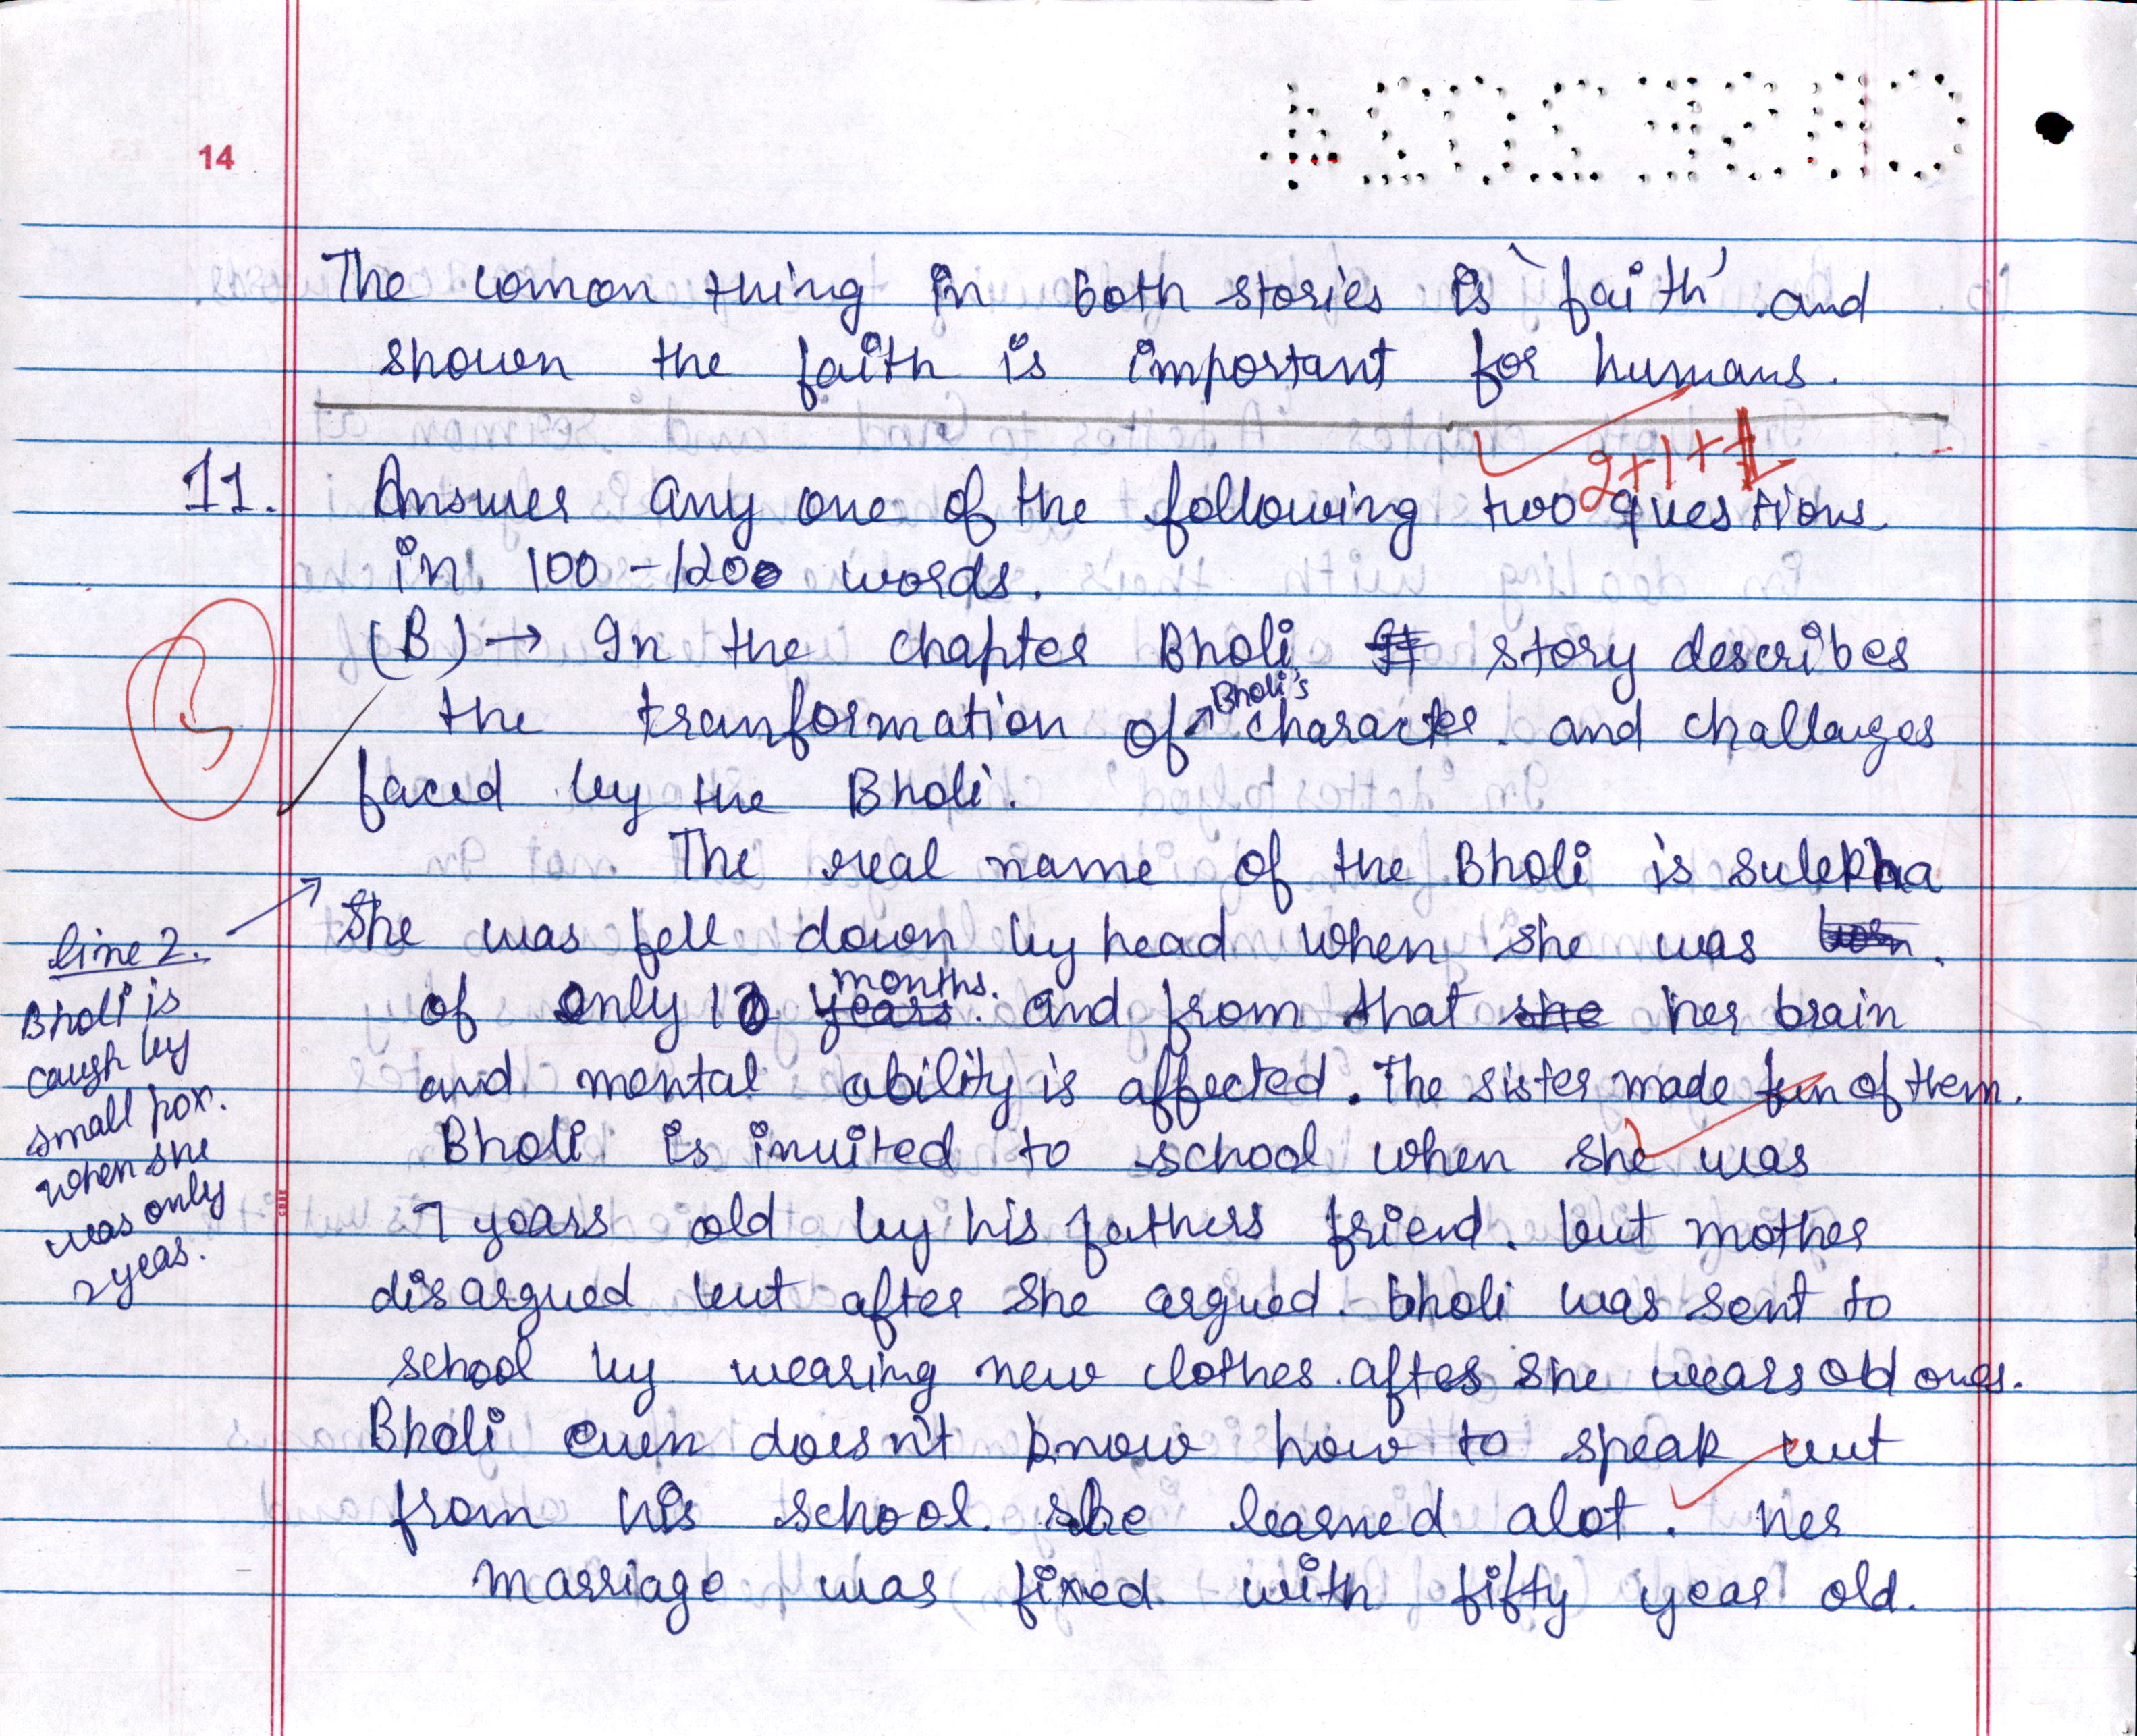 CBSE 2024
14
The comon thing in both stories is 'faith' and
shown the faith is important for humans.
2+1+1
11. Answer any one of the following two questions
in 100-120 words.
(B) → In the chapter Bholi, story describes
the tranformation of Bholi's character. and challanges
faced by the Bholi.
The real name of the Bholi is sulekha
She was fell down by head when she was
of only 10 months. and from that her brain
and mental ability is affected. The sister made fun of them.
Bholi is invited to school when she was
7 years old by his fathers friend. but mother
disargued but after she argued. bholi was sent to
school by wearing new clothes after she wears old ones.
Bholi even doesn't know how to speak but
from his school. she learned alot. her
marriage was fixed with fifty year old.
line 2.
Bholi is
caugh by
small pox.
when she
was only
2 yeas.